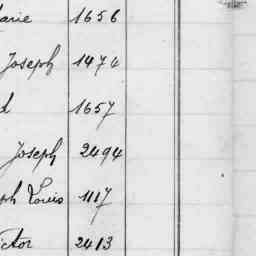 arie 1656
Joseph 1474
d 1657
Joseph 2494
ph Louis 1117
ictor 2413